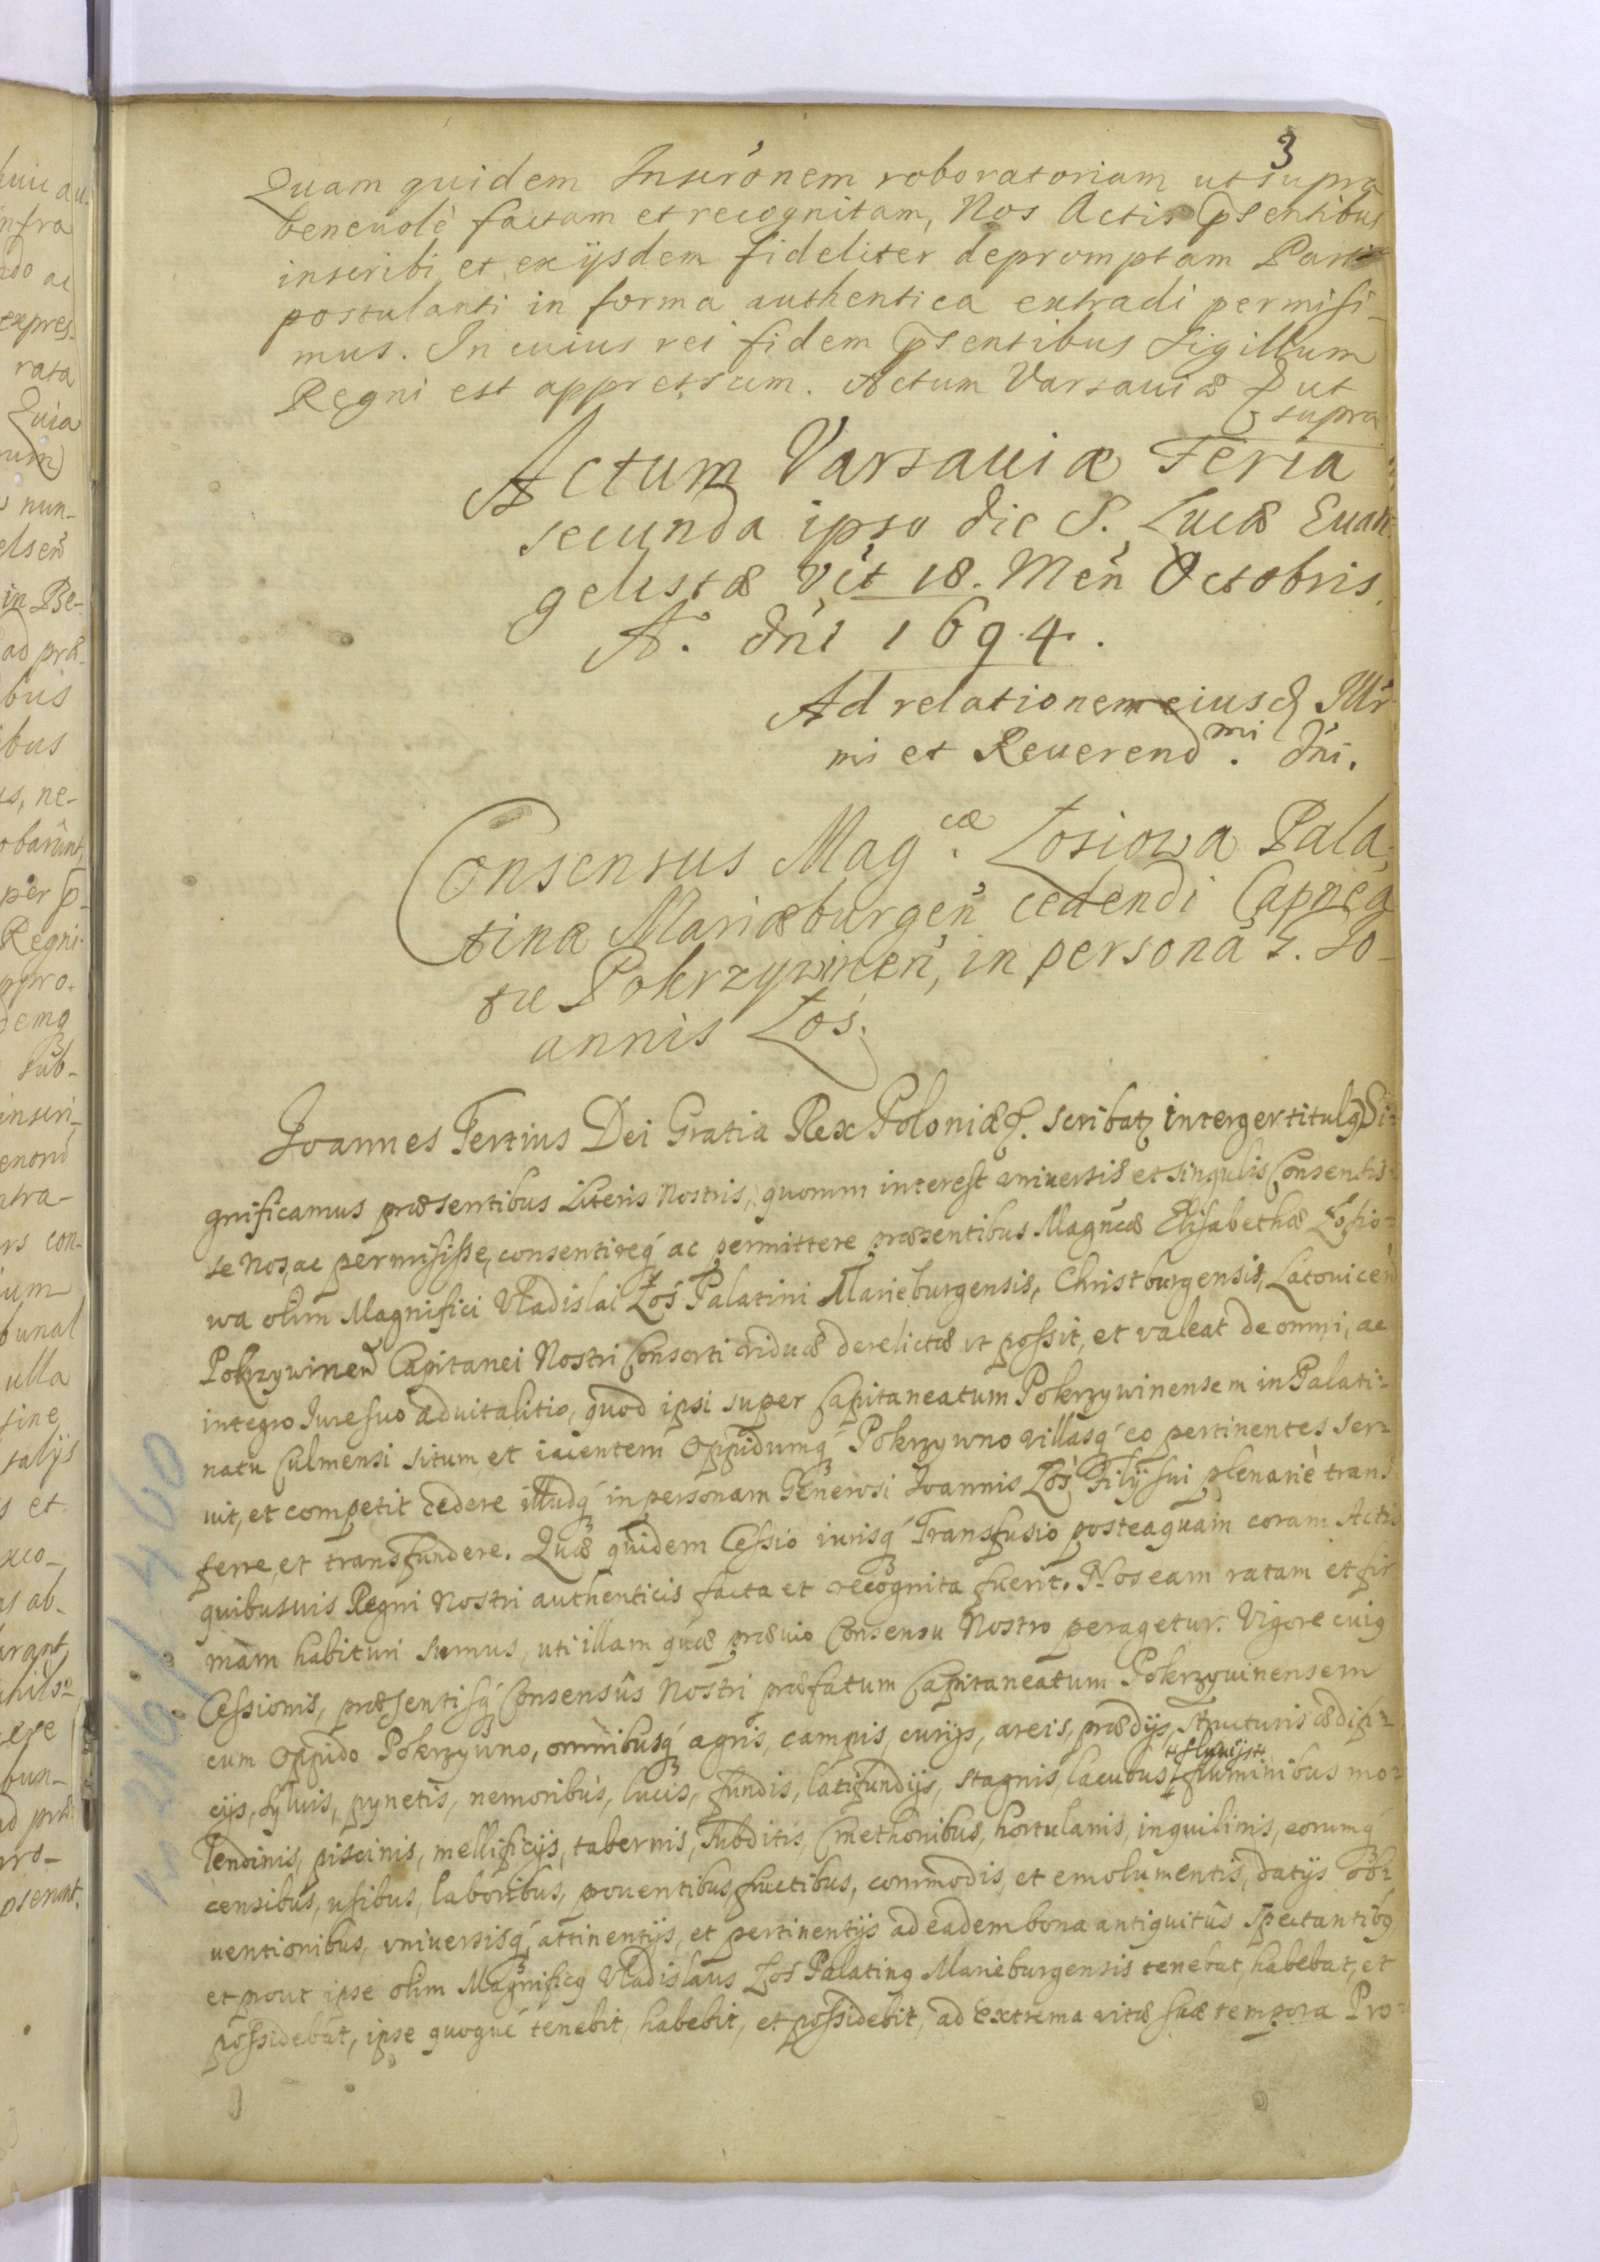 3
Quam quidem Inscrōnem roboratoriam ut supra
beneuolè factam et recognitam, Nos Actis p̄sentibus
inscribi, et ex ijsdem fideliter depromptam Parti
postulanti in forma authentica extradi permisi-
mus. In cuius rei fidem p̄sentibus Sigillum
Regni est appressum. Actum Varsauiæ ut
supra
Actum Varsauiæ Feria
secunda ipso die S. Lucæ Euan-
gelistæ v̄ēt 18. Men̄ Octobris
A°. dn̄i 1694.
Ad relationem eiusd Illr̄-
mi et Reuerend.mi dn̄i.
Consensus Mag.cæ Łosiowa Pala-
tinæ Mariæburgen̄ cedendi Capnea-
tu Pokrzywinen̄, in personā G. Jo-
annis Łoś.
Joannes Tertius Dei Gratia Rex Poloniæ &. scribat intergertitulq Si-
gnificamus præsentibus Literis Nostris, quorum interest vniuersis et singulis Consentis-
se Nos, ac permisisse, consentireq́ ac permittere præsentibus Magn̄cæ Elisabethæ Łosio-
wa olim Magnifici Vladislai Łoś Palatini Marieburgensis, Christburgensis, Latouicen̄
Pokrzywinen̄ Capitanei Nostri Consorti viduæ derelictæ vt possit, et valeat de omni, ac
integro Iure suo aduitalitio, quod ipsi super Capitaneatum Pokrzywinensem in Palati-
natu Culmensi situm et iacentem Oppidumq́ Pokrzywno villasq́ eo pertinentes ser-
uit, et competit cedere illudq́ in personam Generosi Joannis Łoś Filij sui plenariè trans
ferre, et transfundere. Quæ quidem Cessio iurisq́ Transfusio posteaquam coram Actis
quibusuis Regni Nostri authenticis facta et recognita fuerit. Nos eam ratam et fir-
mam habituri sumus, uti illam quæ præuio Consensu Nostro peragetur. Vigore cuiq
Cessionis, præsentisq́ Consensûs Nostri præfatum Capitaneatum Pokrzywinensem
cum Oppido Pokrzywno, omnibusq́ agris, campis, curijs, areis, prædijs, structuris ædifi-
++fluuijs++
cijs, syluis, pynetis, nemoribus, lucis, fundis, latifundijs, stagnis, lacubus, fluminibus mo-
lendinis, piscinis, mellificijs, tabernis, subditis, Cmethonibus, hortulanis, inquilinis, eorumq́
censibus, usibus, laboribus, prouentibus, fructibus, commodis, et emolumentis, datijs ob-
uentionibus, vniuersisq́, attinentijs, et pertinentijs ad eadem bona antiquitûs spectantibq
et prout ipse olim Magnificq Vladislaus Łoś Palatinq Marieburgensis tenebat, habebat, et
possidebat, ipse quoque tenebit, habebit, et possidebit, ad extrema vitæ suæ tempora Pro-